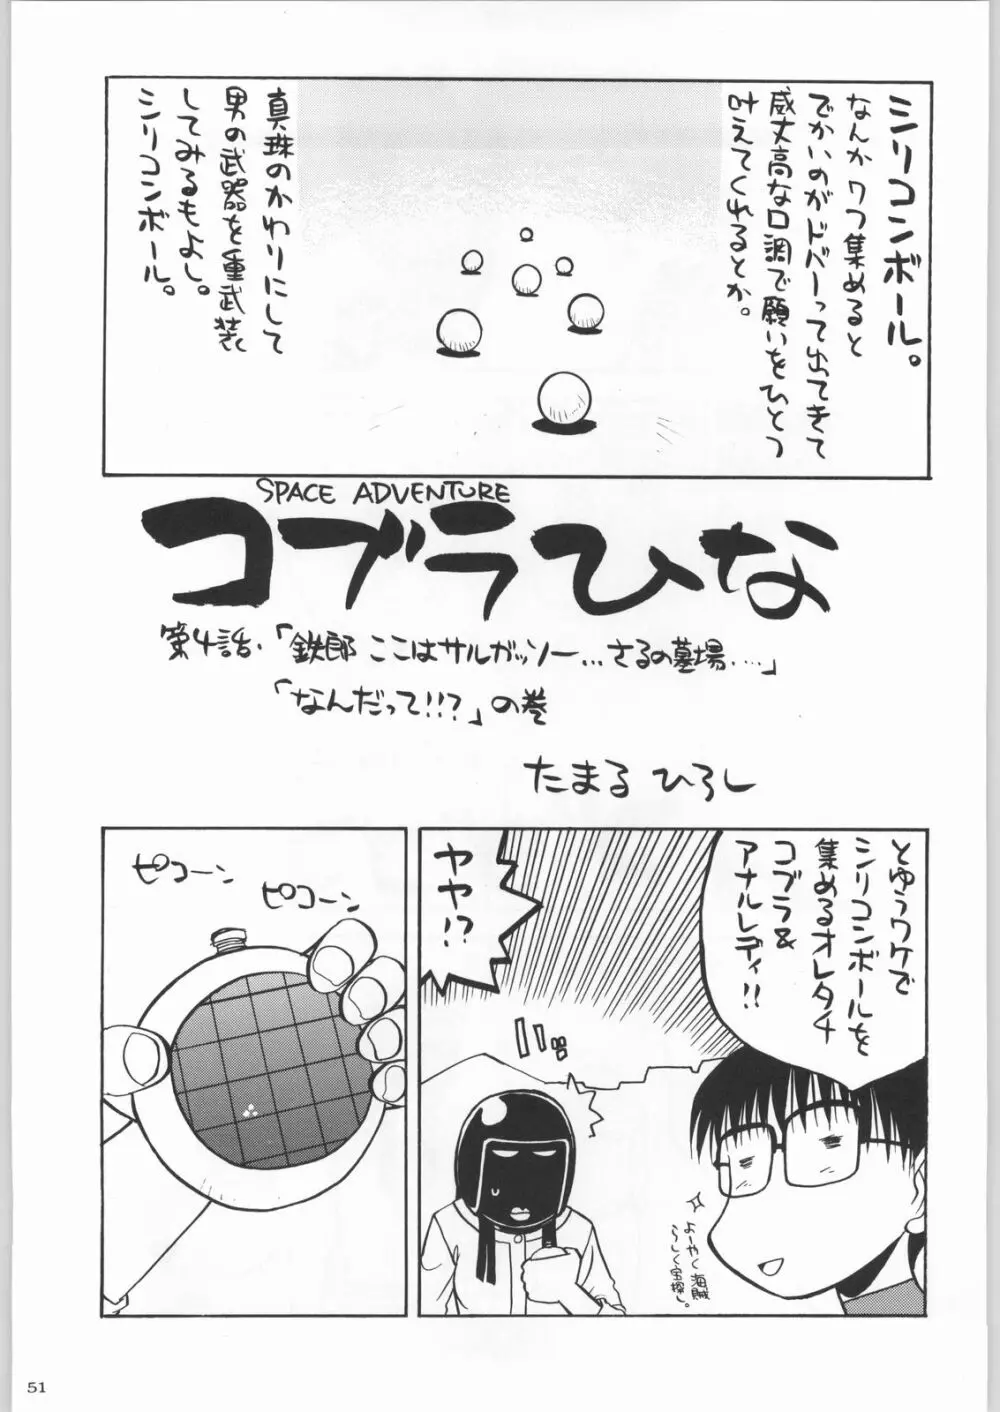 シリコンボール。
なんか7つ集めると
でかいのがドバーって出てきて
威丈高な口調で願いをひとつ
叶えてくれるとか。
真珠のかわりにして
男の武器を重武装
してみるもよし。
シリコンボール。
SPACE ADVENTURE
コブラひな
第4話.「鉄郎 ここはサルガッソー…さるの墓場….」
「なんだって!!?」の巻
たまる ひろし
とゆうワケで
シリコンボールを
集めるオレタチ
コブラ&
アナルレディ!!
ヤヤ!?
よーやく海賊
らしく宝探し。
ピコーン
ピコーン
51